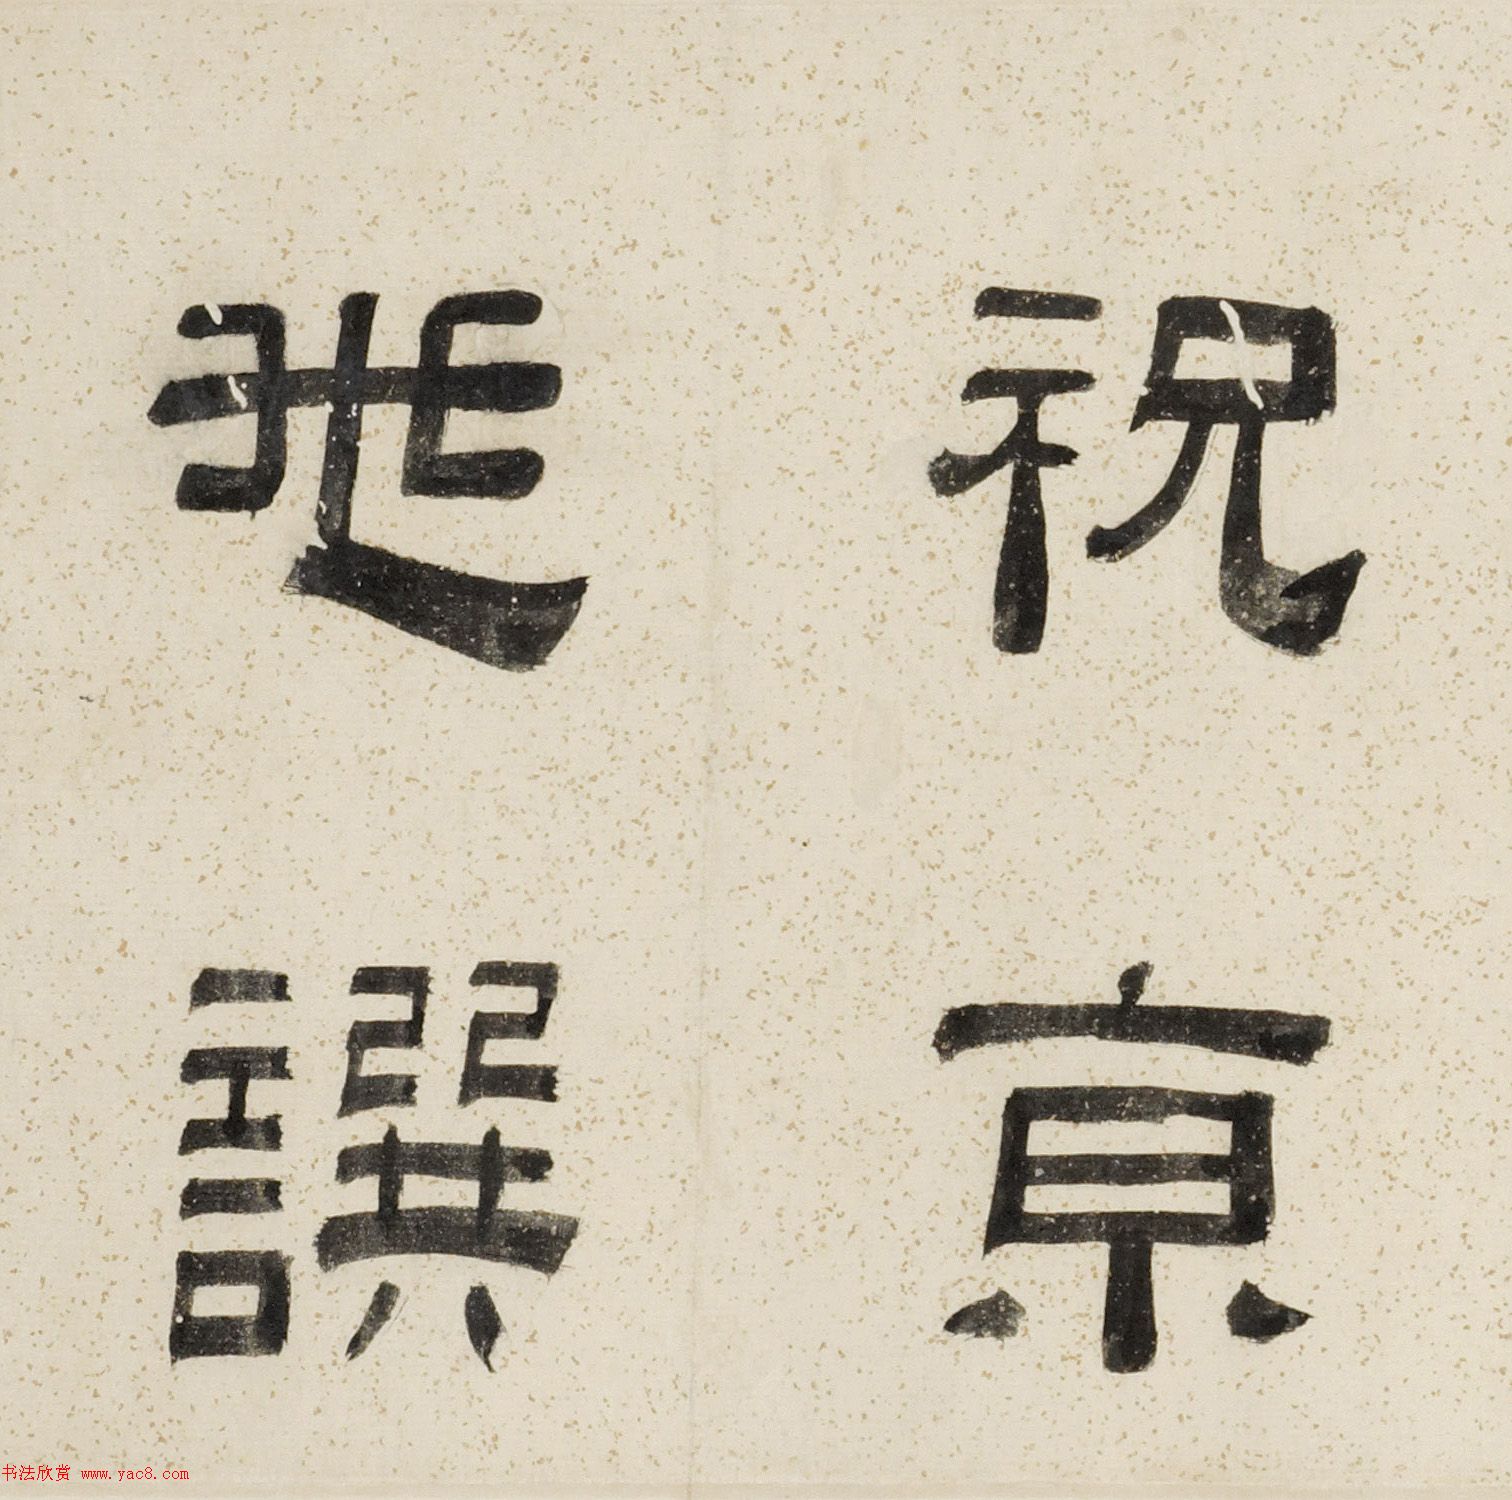 祝亰
兆譔
书法欣赏 www.yac8.com